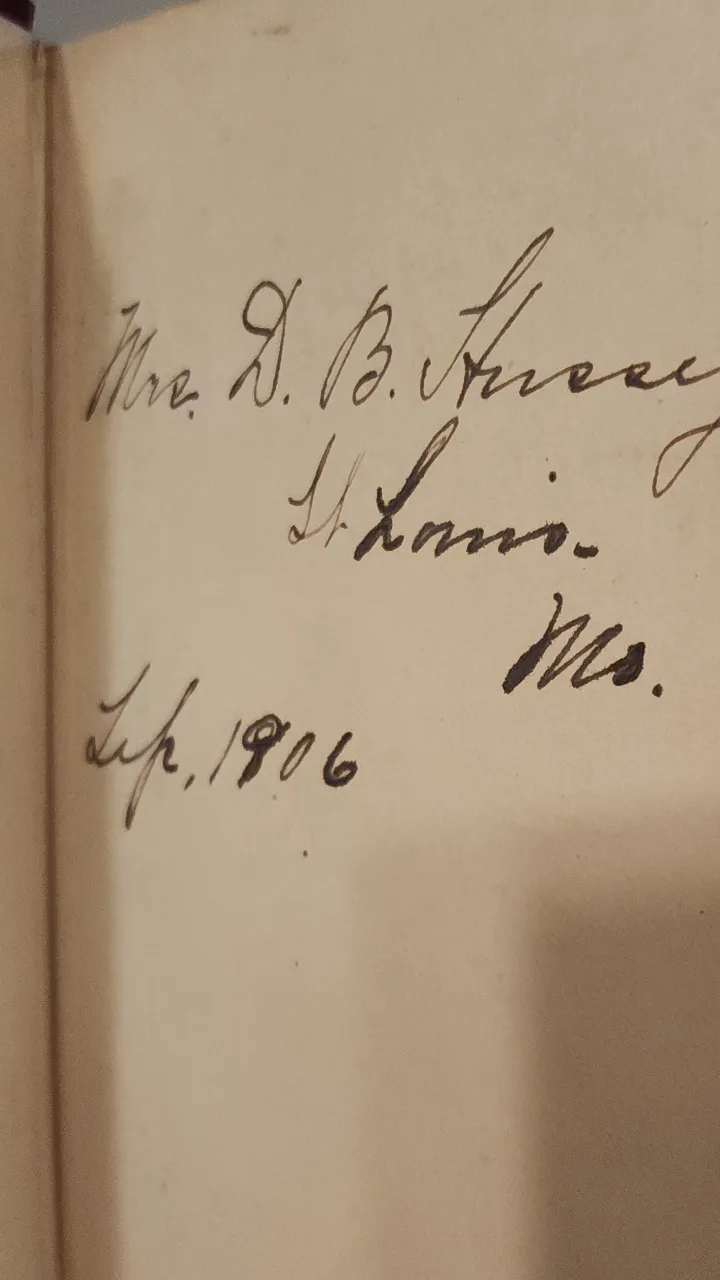 Mrs. D. B. Hussey
St. Louis.
Mo.
Sep, 1906